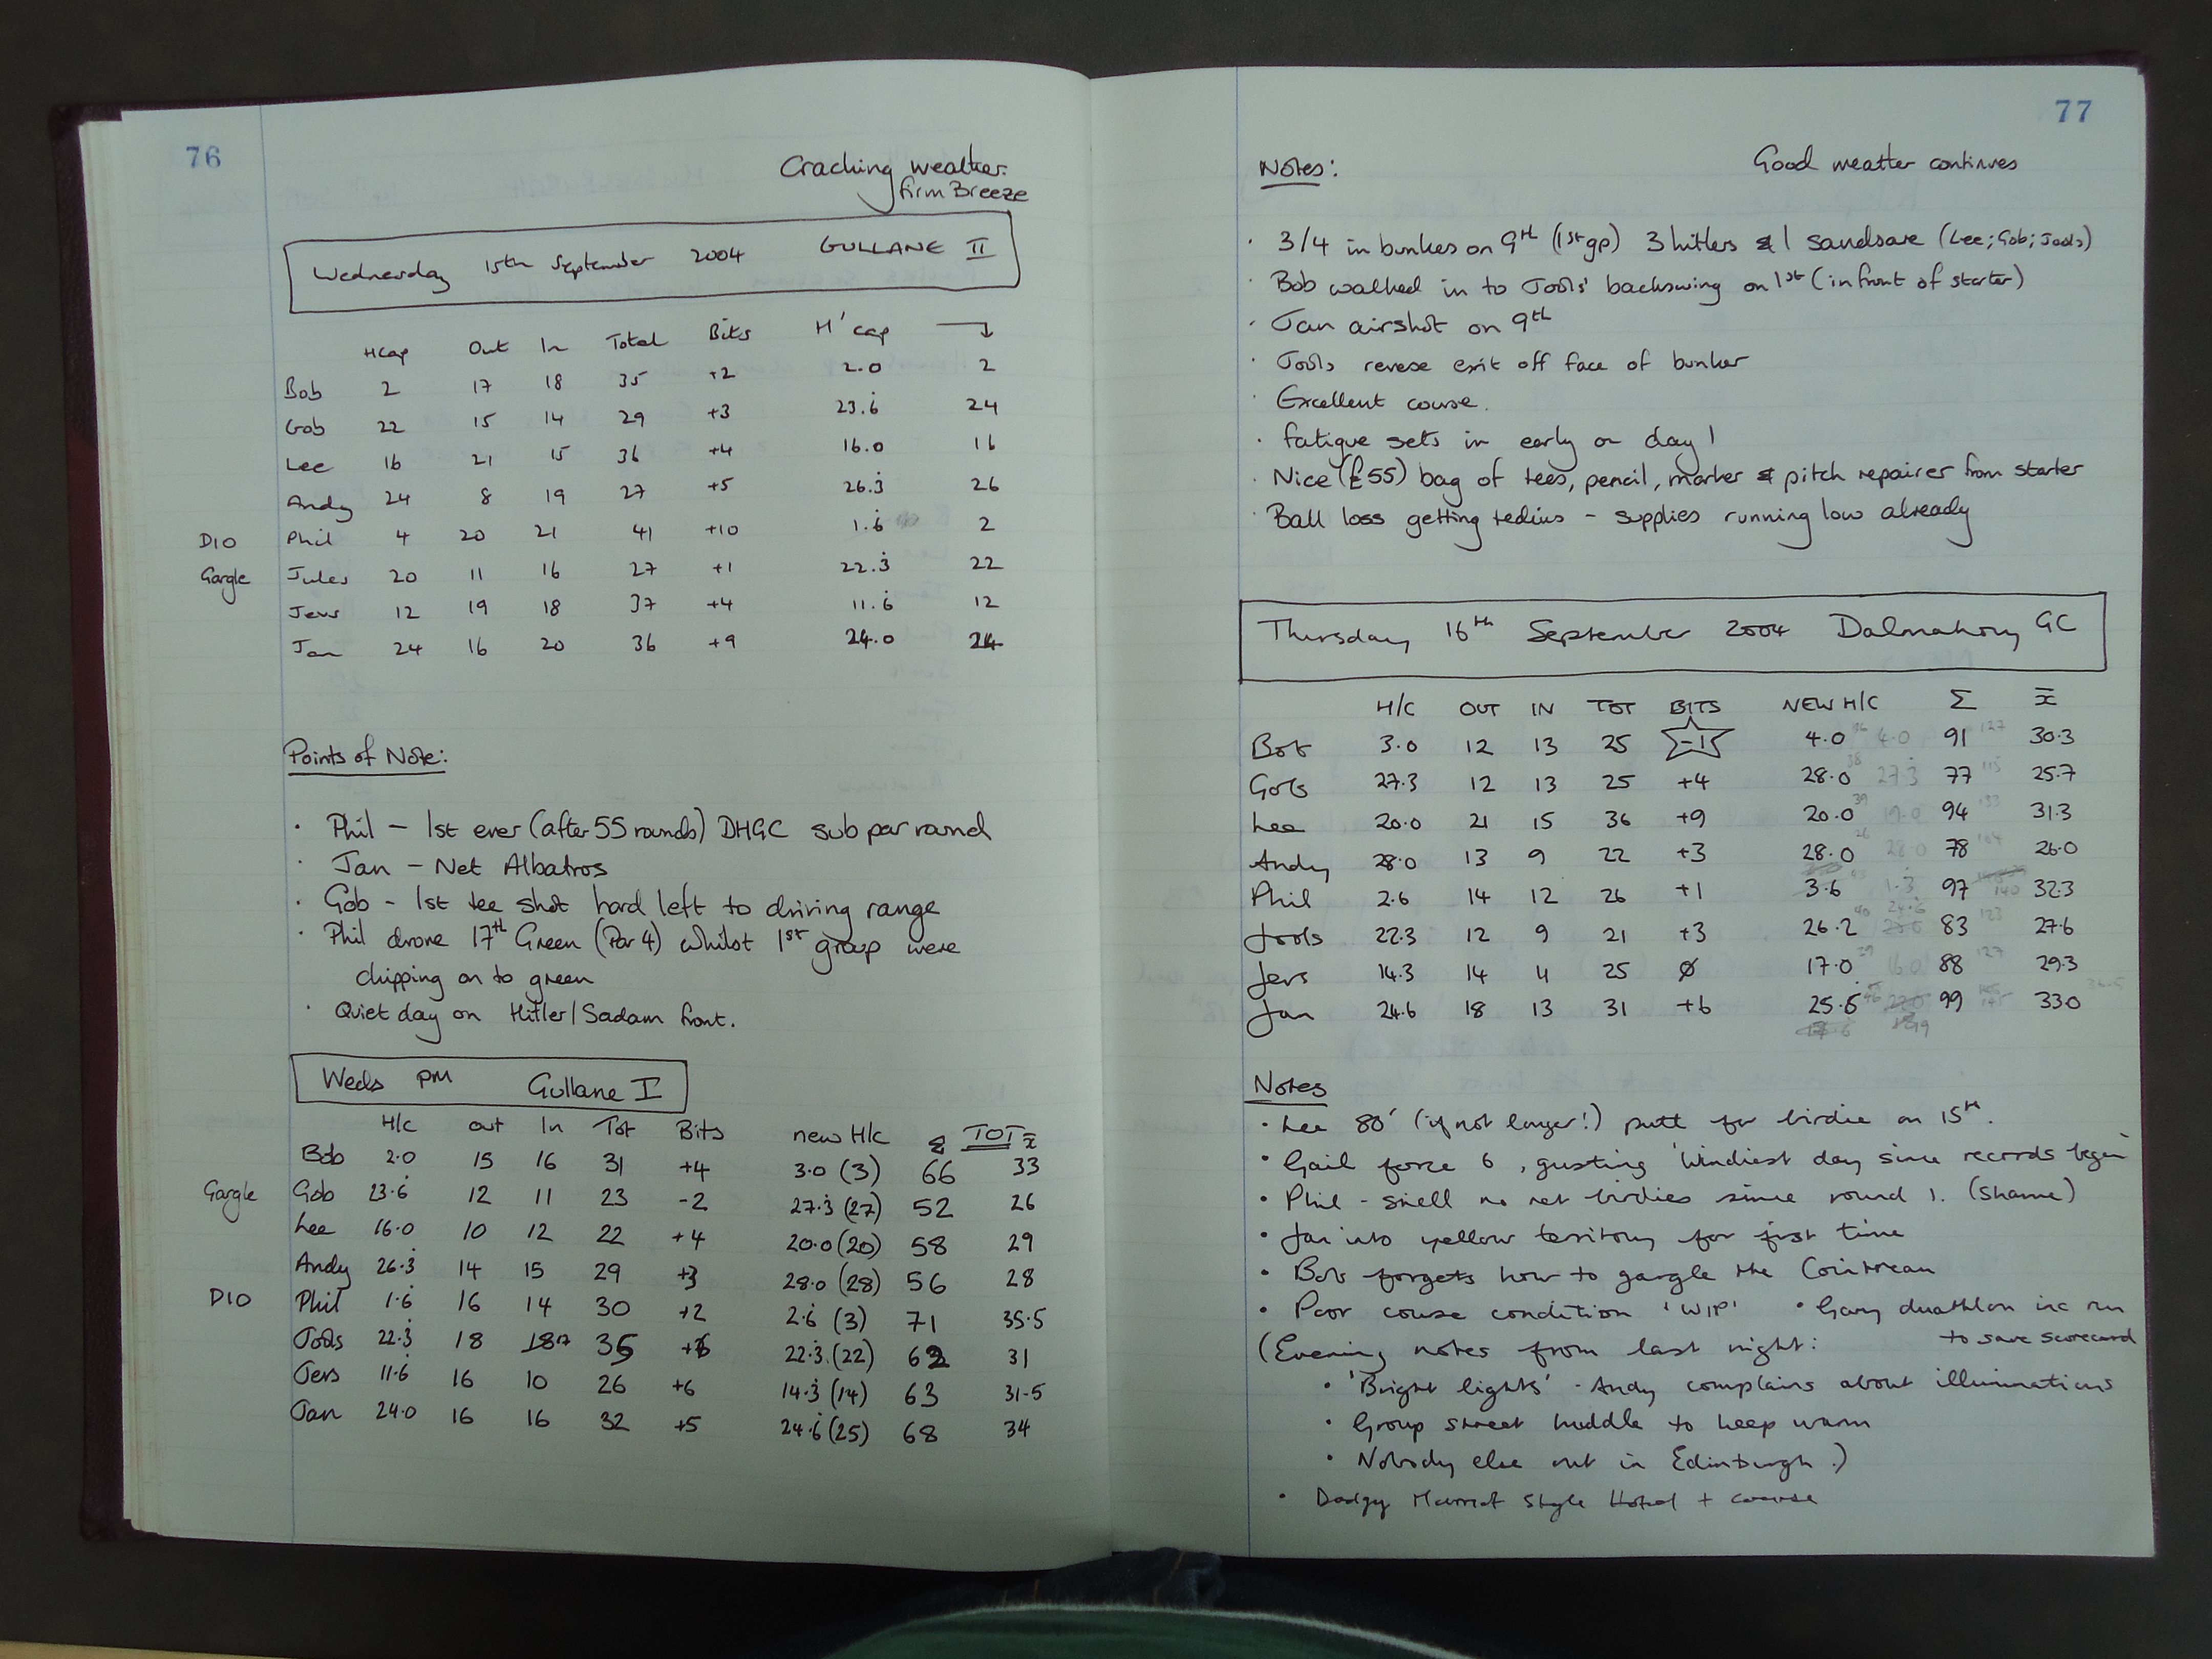 76
Cracking weather.
firm Breeze
Wednesday 15th September 2004 GULLANE II
HCap Out In Total Bits H'cap
Bob 2 17 18 35 +2 2.0 2
Gob 22 15 14 29 +3 23.6̇ 24
Lee 16 21 15 36 +4 16.0 16
Andy 24 8 19 27 +5 26.3̇ 26
D10 Phil 4 20 21 41 +10 1.6̇ 2
Gargle Jules 20 11 16 27 +1 22.3̇ 22
Jevs 12 19 18 37 +4 11.6̇ 12
Jan 24 16 20 36 +9 24.0 24
Points of Note:
· Phil – 1st ever (after 55 rounds) DHGC sub par round
· Jan – Net Albatros
· Gob – 1st tee shot hard left to driving range
· Phil drove 17th Green (Par 4) whilst 1st group were
chipping on to green
· Quiet day on Hitler/Sadam front.
Weds PM Gullane I
H/c out In Tot Bits new H/c Σ TOT x̄
Bob 2.0 15 16 31 +4 3.0 (3) 66 33
Gargle Gob 23.6̇ 12 11 23 -2 27.3̇ (27) 52 26
Lee 16.0 10 12 22 +4 20.0 (20) 58 29
Andy 26.3̇ 14 15 29 +3 28.0 (28) 56 28
D10 Phil 1.6̇ 16 14 30 +2 2.6̇ (3) 71 35.5
Jools 22.3̇ 18 18 17 35 22.3̇ (22) 62 31
Jevs 11.6̇ 16 10 26 +6 14.3̇ (14) 63 31.5
Jan 24.0 16 16 32 +5 24.6̇ (25) 68 34
77
Notes: Good weather continues
· 3/4 in bunkers on 9th (1st gp) 3 hitlers & 1 sandsave (Lee; Gob; Jools)
· Bob walked in to Jools' backswing on 1st (in front of starter)
· Jan airshot on 9th
· Jools revese exit off face of bunker
· Excellent course.
· fatigue sets in early on day 1
· Nice (£55) bag of tees, pencil, marker & pitch repairer from starter
· Ball loss getting tedius – supplies running low already
Thursday 16th September 2004 Dalmahoy GC
H/C OUT IN TOT BITS NEW H/C Σ x̄
Bob 3.0 12 13 25 -1 4.0 4.0 91 127 30.3
Gob 27.3 12 13 25 +4 28.0 27.3̇ 77 115 25.7
Lee 20.0 21 15 36 +9 20.0 19.0 94 133 31.3
Andy 28.0 13 9 22 +3 28.0 28.0 78 104 26.0
Phil 2.6 14 12 26 +1 3.6 1.3̇ 97 140 32.3
Jools 22.3 12 9 21 +3 26.2 83 123 27.6
Jevs 14.3 14 11 25 Ø 17.0 16.0 88 127 29.3
Jan 24.6 18 13 31 +6 25.6̇ 99 33.0
Notes
· Lee 80' (if not longer!) putt for birdie on 15th.
· Gail force 6, gusting 'Windiest day since records began
· Phil - snell no net birdies since round 1. (Shame)
· Jan into yellow territory for first time
· Bob forgets how to gargle the Cointreau
· Poor course condition 'WIP' · Gary duathlon inc run
to save scorecard
(Evening notes from last night:
· 'Bright lights' - Andy complains about illuminations
· Group street huddle to keep warm
· Nobody else out in Edinburgh.)
· Dodgy Marriot Style Hotel + course